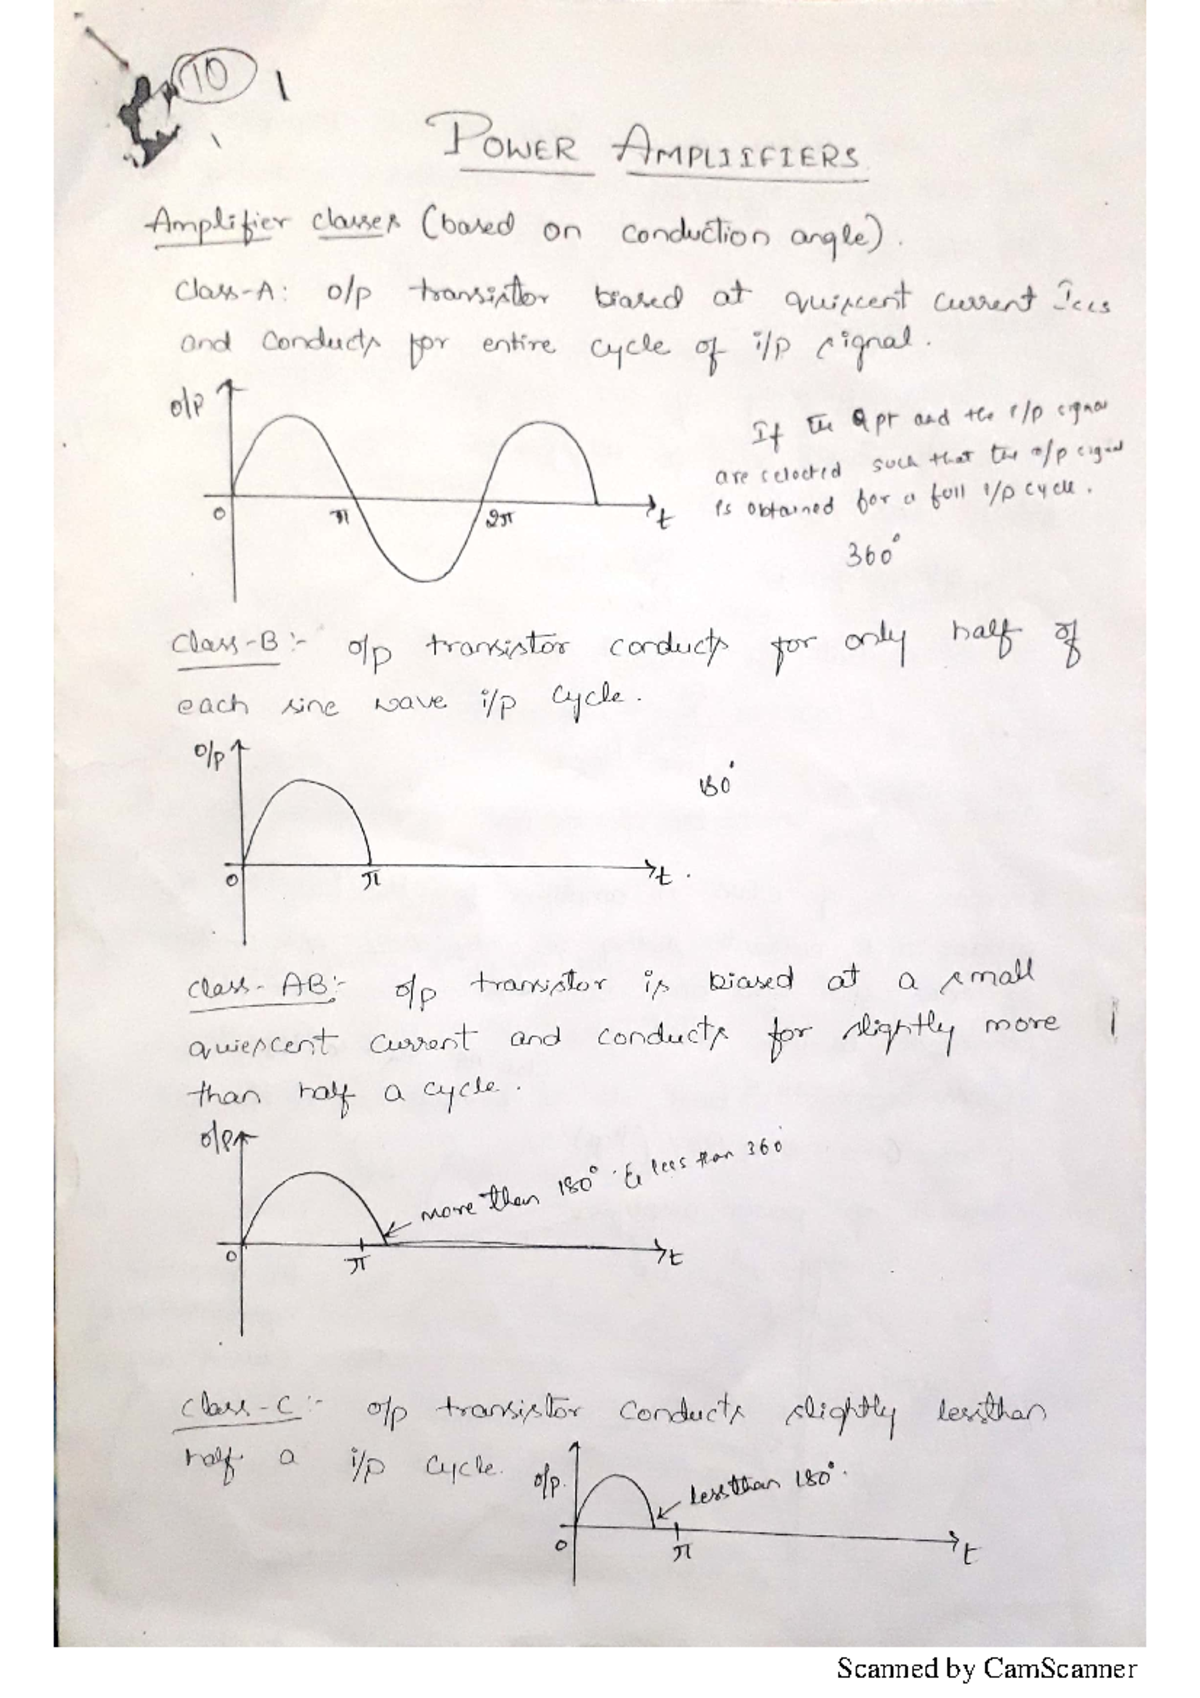 10
POWER AMPLIIFIERS
Amplifier classes (based on conduction angle).
Class-A: o/p transistor biased at quiscent current
and conducts for entire cycle of i/p signal.
o/p
0 π 2π t
If the Q pt and the i/p signal
are selected such that the o/p signal
is obtained for a full i/p cycle.
360°
Class-B:- o/p transistor conducts for only half of
each sine wave i/p cycle.
o/p
180°
0 π t
Class-AB:- o/p transistor is biased at a small
quiescent current and conducts for slightly more
than half a cycle.
o/p
more than 180° & less than 360
0 π t
Class-C:- o/p transistor conducts slightly lessthan
half a i/p cycle.
o/p
lessthan 180°.
0 π t
Scanned by CamScanner